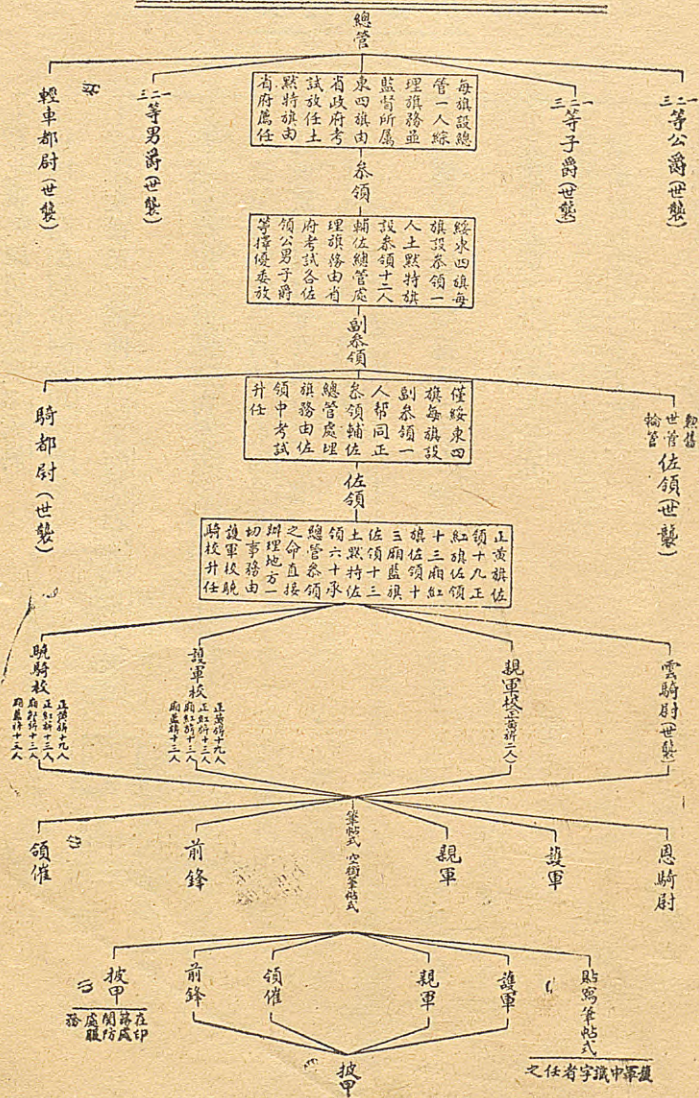 總管
一二三等公爵(世襲)
一二三等子爵(世襲)
每旗設總
管一人綜
理旗務並
監督所屬
東四旗由
省政府考
試放任土
默特旗由
省府薦任
一二三等男爵(世襲)
輕車都尉(世襲)
參領
綏東四旗每
旗設參領一
人土默特旗
設參領十二人
輔佐總管處
理旗務由省
府考試各佐
領公男子爵
等擇優委放
副參領
僅綏東四
旗每旗設
副參領一
人幫同正
參領輔佐
總管處理
旗務由佐
領中考試
升任
勳舊
世管
輪管
佐領(世襲)
騎都尉(世襲)
佐領
正黃旗佐
領十九正
紅旗佐領
十三廂紅
旗佐領十
三廂藍旗
佐領十三
土默特佐
領六十承
總管參領
之命直接
辦理地方一
切事務由
護軍校驍
騎校升任
雲騎尉(世襲)
親軍校(正黃旗二人)
護軍校
正黃旗十九人
正紅旗十三人
廂紅旗十三人
廂藍旗十三人
驍騎校
正黃旗十九人
正紅旗十三人
廂紅旗十三人
廂藍旗十三人
恩騎尉
護軍
親軍
筆帖式 空銜筆帖式
前鋒
領催
貼寫筆帖式
護軍中識字者任之
護軍
親軍
領催
前鋒
披甲
在印
務處
關防
處服
務
披甲